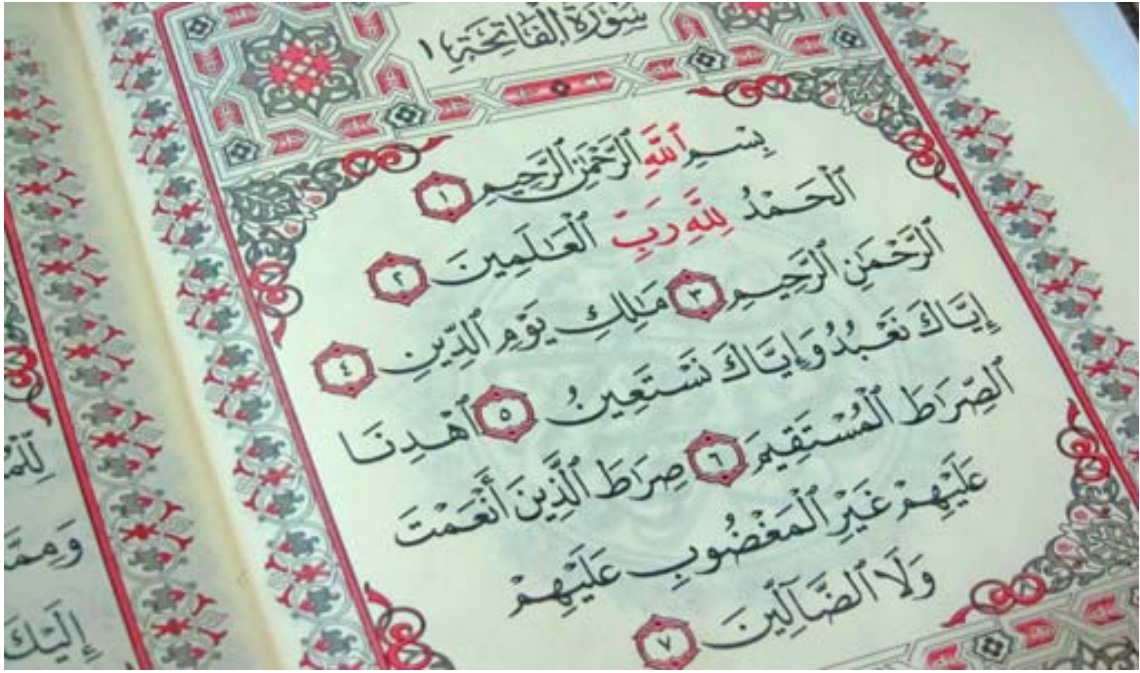 سُورَةُ الْفَاتِحَةِ ١
بِسْمِ ٱللَّهِ ٱلرَّحْمَٰنِ ٱلرَّحِيمِ ١
ٱلْحَمْدُ لِلَّهِ رَبِّ ٱلْعَٰلَمِينَ ٢
ٱلرَّحْمَٰنِ ٱلرَّحِيمِ ٣ مَٰلِكِ يَوْمِ ٱلدِّينِ ٤
إِيَّاكَ نَعْبُدُ وَإِيَّاكَ نَسْتَعِينُ ٥ ٱهْدِنَا
ٱلصِّرَٰطَ ٱلْمُسْتَقِيمَ ٦ صِرَٰطَ ٱلَّذِينَ أَنْعَمْتَ
عَلَيْهِمْ غَيْرِ ٱلْمَغْضُوبِ عَلَيْهِمْ
وَلَا ٱلضَّآلِّينَ ٧
إِلَيْكَ